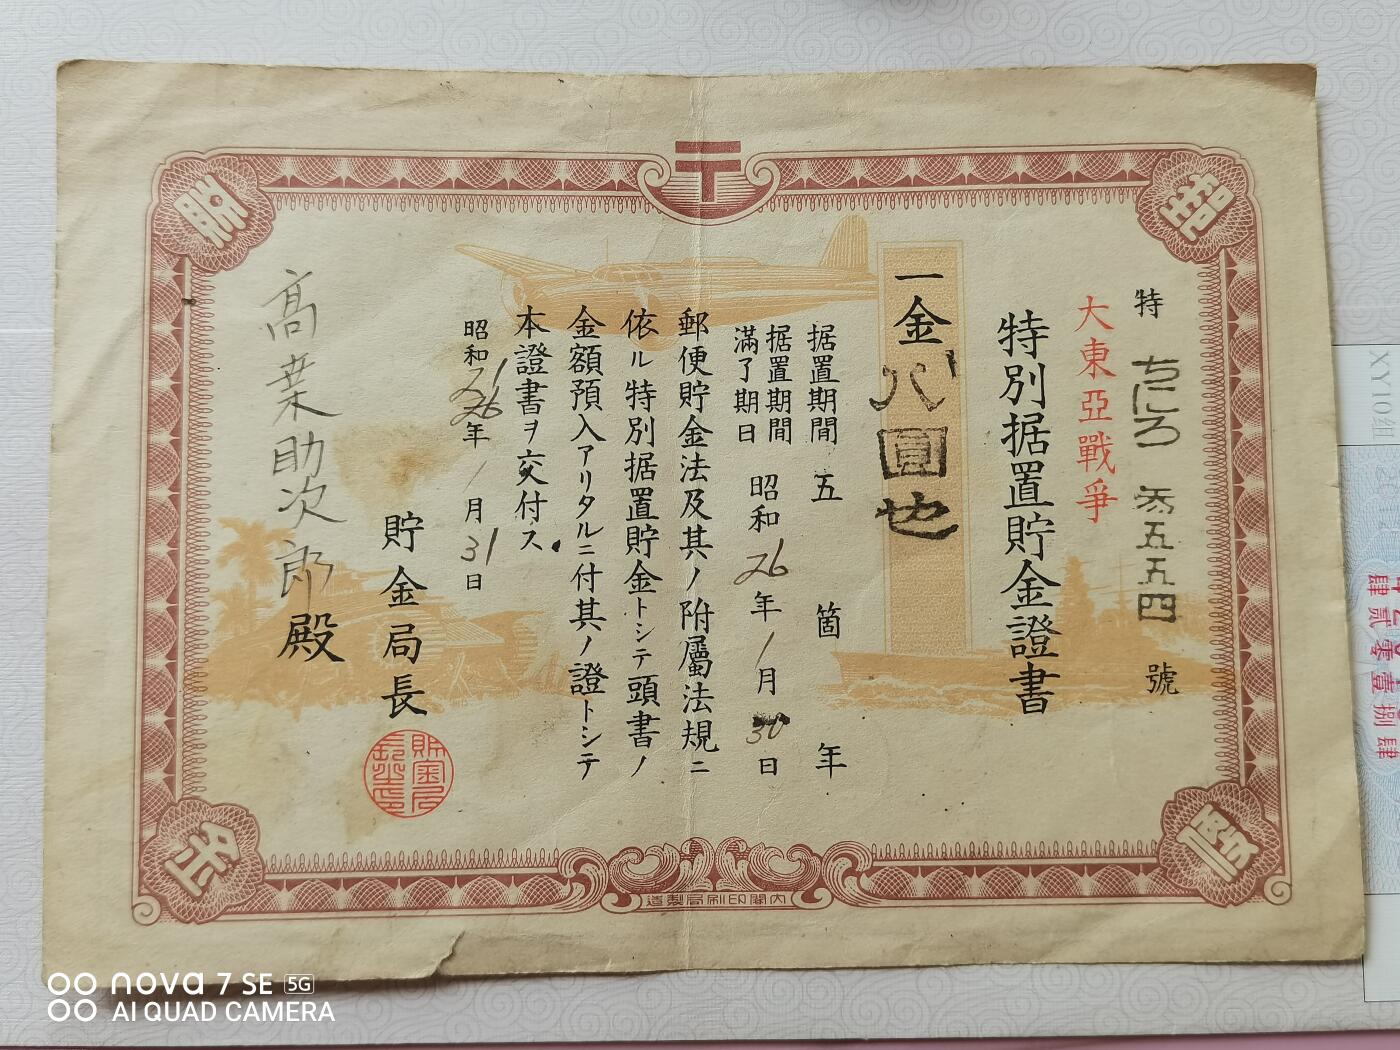 〒
特 參五五四 號
大東亞戰爭
特別据置貯金證書
一金八圓也
据置期間 五箇年
据置期間滿了期日 昭和26年1月30日
郵便貯金法及其ノ附屬法規ニ
依ル特別据置貯金トシテ頭書ノ
金額預入アリタルニ付其ノ證トシテ
本證書ヲ交付ス
昭和21年1月31日
貯金局長
高葉助次郎殿
內閣印刷局製造
XY10組
肆貳零壹捌肆
nova 7 SE 5G
AI QUAD CAMERA